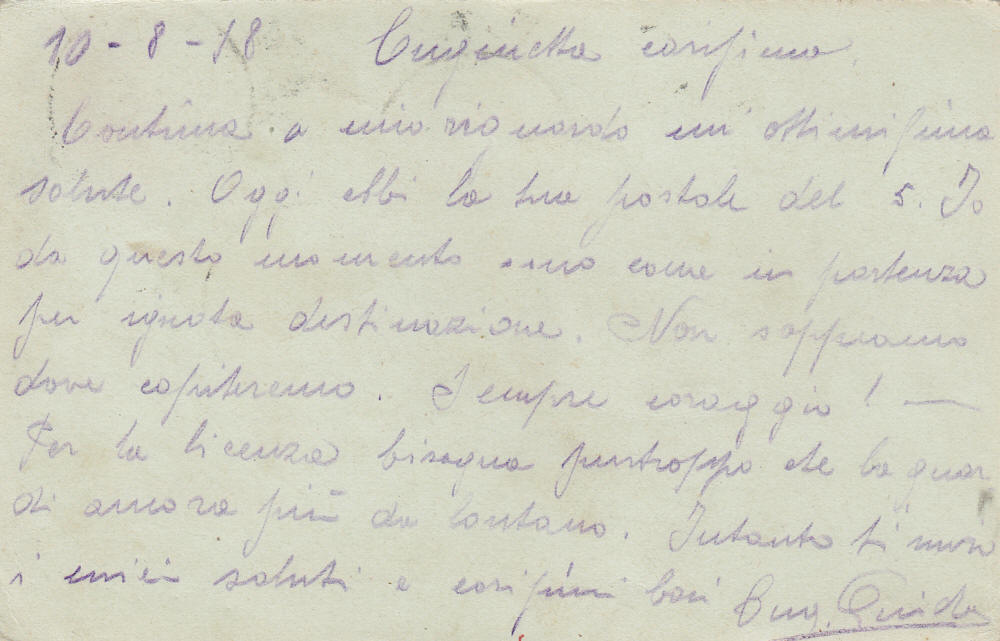 10 - 8 - 18 Cuginetta carissima
Continua a mio riguardo un'ottimissima
salute. Oggi ebbi la tua postale del 5. Io
da questo momento sono come in partenza
per ignota destinazione. Non sappiamo
dove capiteremo. Sempre coraggio! —
Per la licenza bisogna purtroppo che la guar
di ancora più da lontano. Intanto ti invio
i miei saluti e carissimi baci Cug. Guido